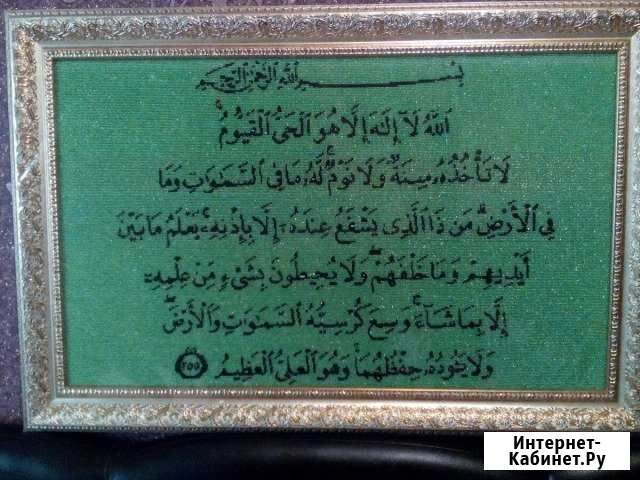 بسم الله الرحمن الرحيم
ٱللَّهُ لَآ إِلَٰهَ إِلَّا هُوَ ٱلْحَىُّ ٱلْقَيُّومُ ۚ
لَا تَأْخُذُهُۥ سِنَةٌ وَلَا نَوْمٌ ۚ لَّهُۥ مَا فِى ٱلسَّمَٰوَٰتِ وَمَا
فِى ٱلْأَرْضِ ۗ مَن ذَا ٱلَّذِى يَشْفَعُ عِندَهُۥٓ إِلَّا بِإِذْنِهِۦ ۚ يَعْلَمُ مَا بَيْنَ
أَيْدِيهِمْ وَمَا خَلْفَهُمْ ۖ وَلَا يُحِيطُونَ بِشَىْءٍ مِّنْ عِلْمِهِۦٓ
إِلَّا بِمَا شَآءَ ۚ وَسِعَ كُرْسِيُّهُ ٱلسَّمَٰوَٰتِ وَٱلْأَرْضَ ۖ
وَلَا يَـُٔودُهُۥ حِفْظُهُمَا ۚ وَهُوَ ٱلْعَلِىُّ ٱلْعَظِيمُ ٢٥٥
Интернет-
Кабинет.Ру